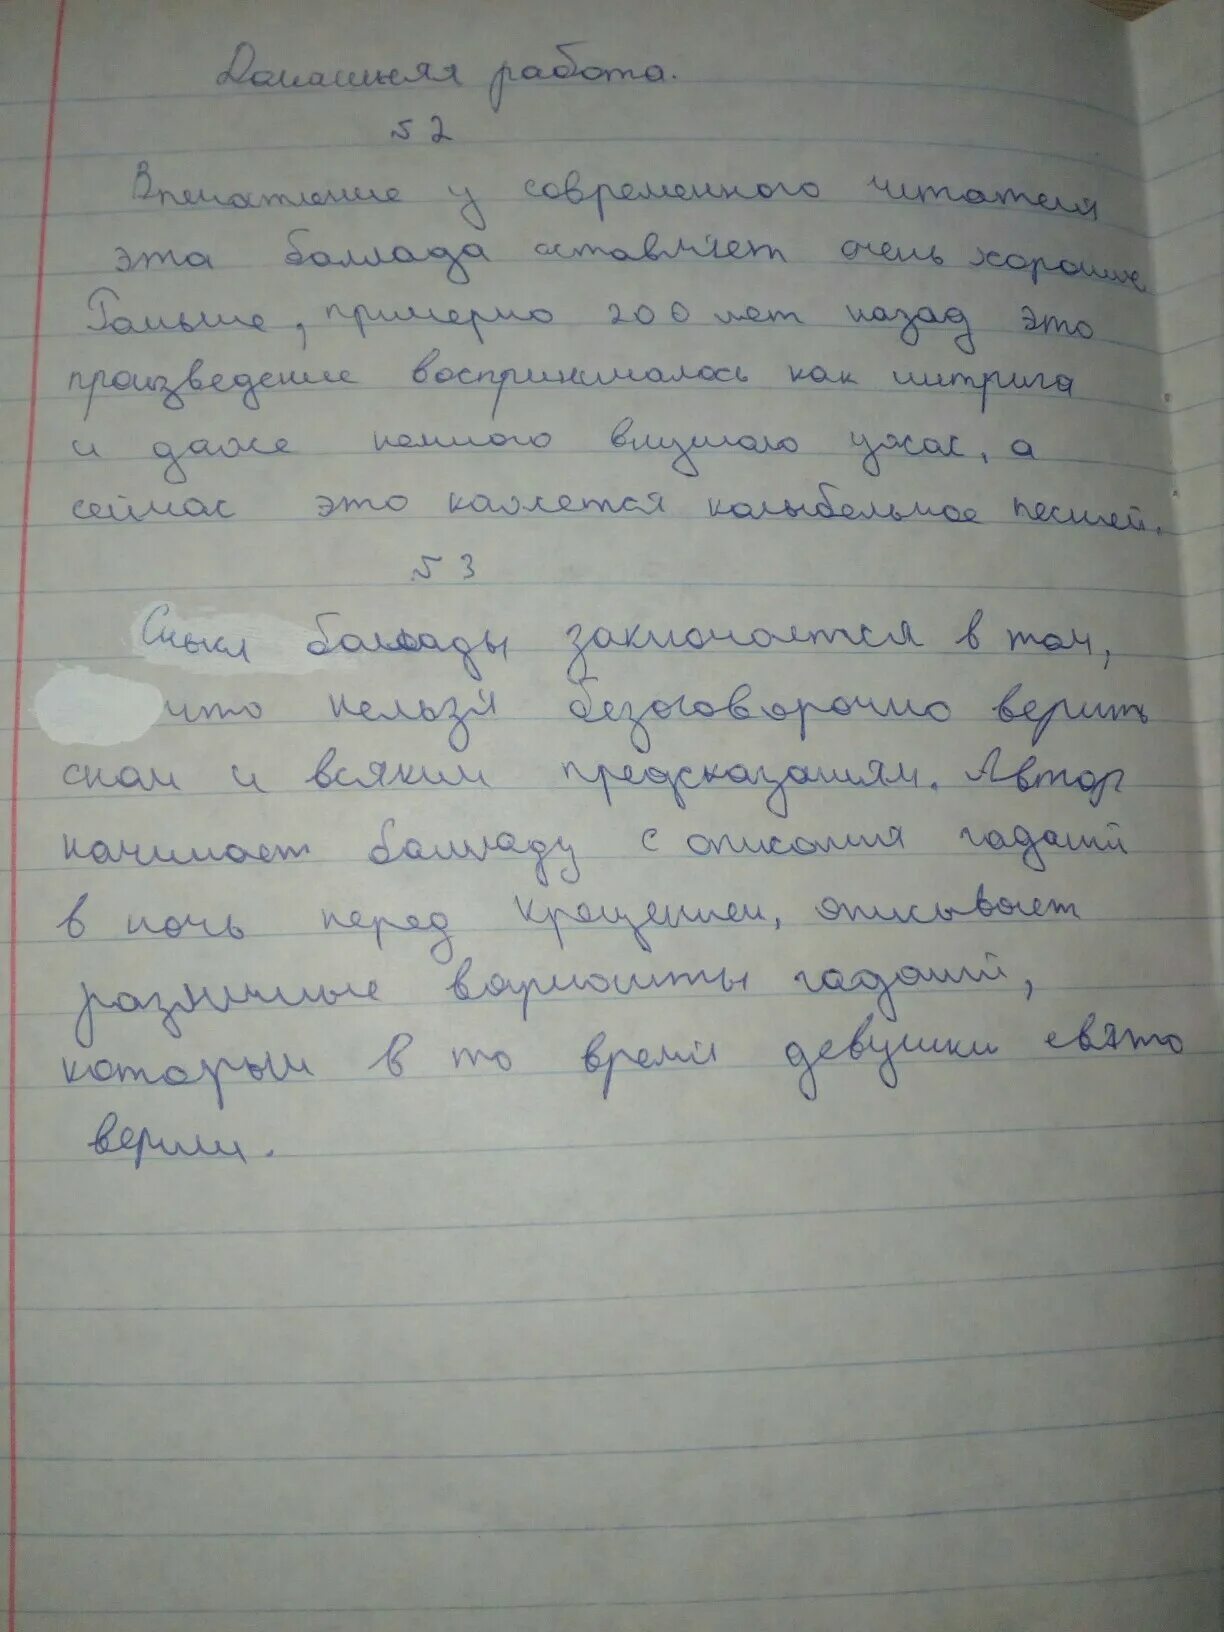 Домашняя работа.
№ 2
Впечатление у современного читателя
эта баллада оставляет очень хорошие
Раньше, примерно 200 лет назад это
произведение воспринималось как интрига
и даже немного внушало ужас, а
сейчас это кажется колыбельное песней.
№ 3
Смысл баллады заключается в том,
что нельзя безоговорочно верить
снам и всяким предсказаниям. Автор
начинает балладу с описания гаданий
в ночь перед Крещением, описывает
различные варианты гаданий,
которым в то время девушки свято
верили.